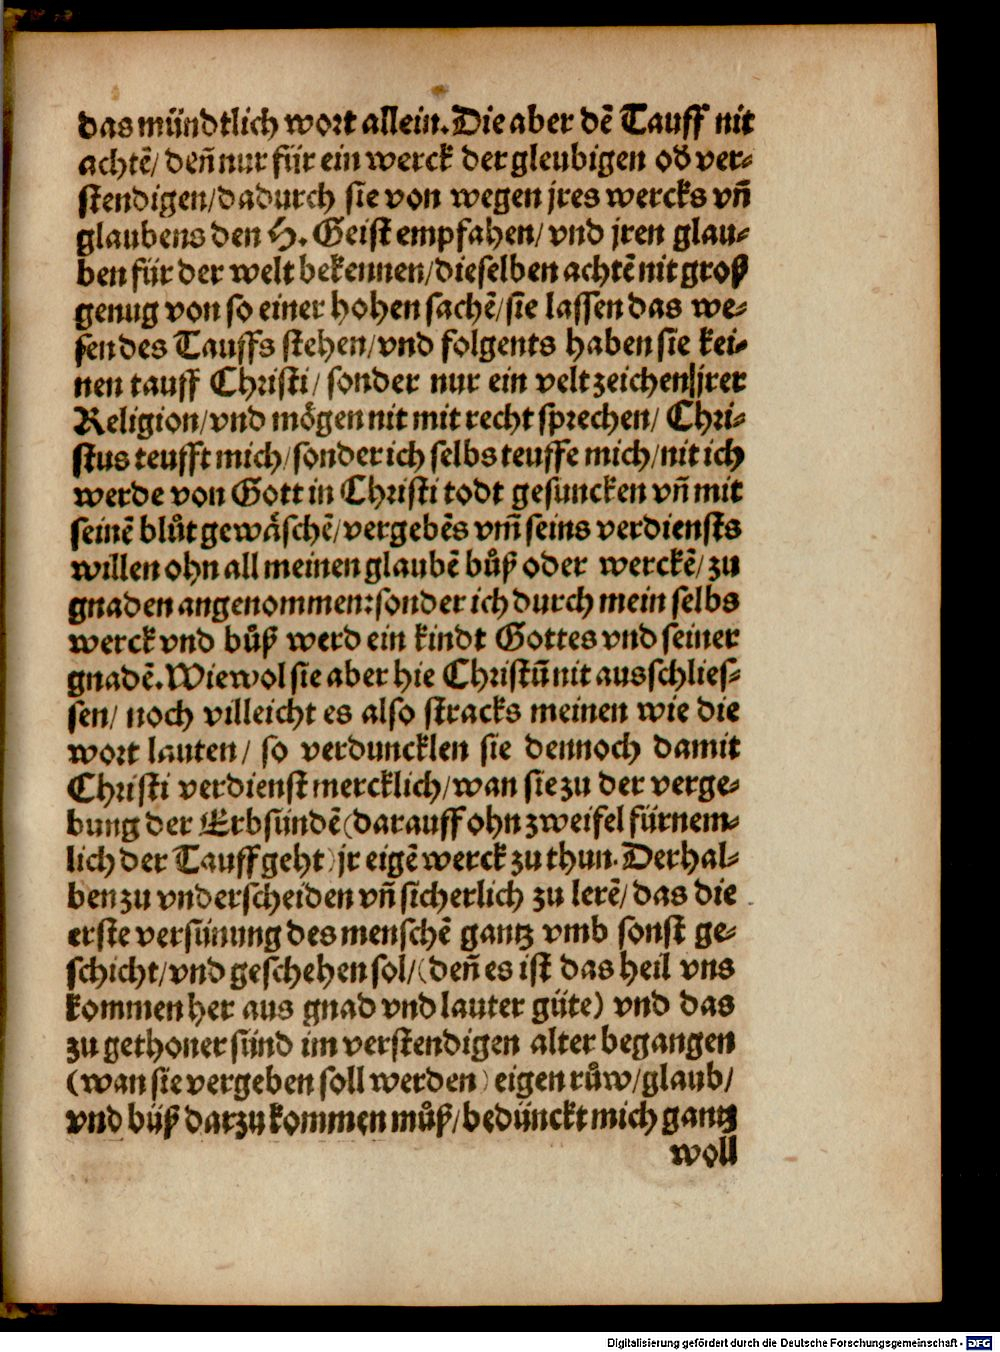 das mündtlich wort allein. Die aber dē Tauff nit
achtē/ deñ nur für ein werck der gleubigen od ver-
stendigen/ dadurch sie von wegen jres wercks vñ
glaubens den H. Geist empfahen/ vnd jren glau-
ben für der welt bekennen/ dieselben achtē nit groß
genug von so einer hohen sachē/ sie lassen das we-
sen des Tauffs stehen/ vnd folgents haben sie kei-
nen tauff Christi/ sonder nur ein veltzeichen jrer
Religion/ vnd mögen nit mit recht sprechen/ Chri-
stus teufft mich/ sonder ich selbs teuffe mich/ nit ich
werde von Gott in Christi todt gesuncken vñ mit
seinē blůt gewäschē/ vergebēs vm̄ seins verdiensts
willen ohn all meinen glaubē bůß oder werckē/ zu
gnaden angenommen: sonder ich durch mein selbs
werck vnd bůß werd ein kindt Gottes vnd seiner
gnadē. Wiewol sie aber hie Christū nit ausschlies-
sen/ noch villeicht es also stracks meinen wie die
wort lauten/ so verduncklen sie dennoch damit
Christi verdienst mercklich/ wan sie zu der verge-
bung der Erbsündē (darauff ohn zweifel fürnem-
lich der Tauff geht) jr eigē werck zu thun. Derhal-
ben zu vnderscheiden vñ sicherlich zu lerē/ das die
erste versünung des menschē gantz vmb sonst ge-
schicht/ vnd geschehen sol/ (deñ es ist das heil vns
kommen her aus gnad vnd lauter güte) vnd das
zu gethoner sünd im verstendigen alter begangen
(wan sie vergeben soll werden) eigen růw/ glaub/
vnd büß darzu kommen můß/ bedünckt mich gantz
woll
Digitalisierung gefördert durch die Deutsche Forschungsgemeinschaft - DFG